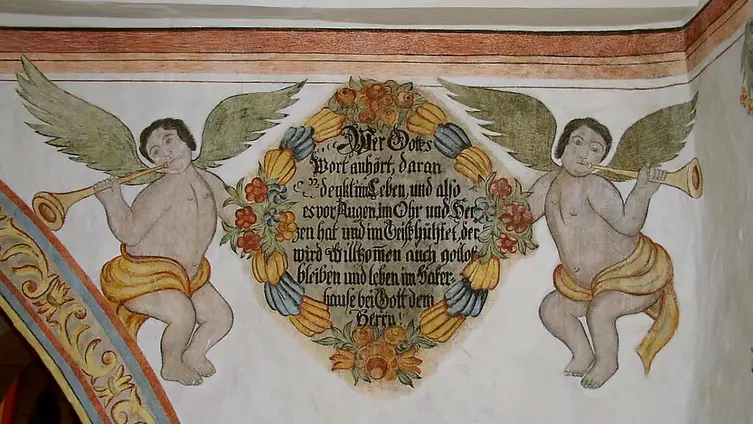 Wer Gotes
Wort anhört, daran
denkt im Leben, und also
es vor Augen, im Ohr und Her
zen hat und im Geist der
wird Willkom̅en auch
bleiben und leben im Vater-
hause bei Gott dem
Herrn!